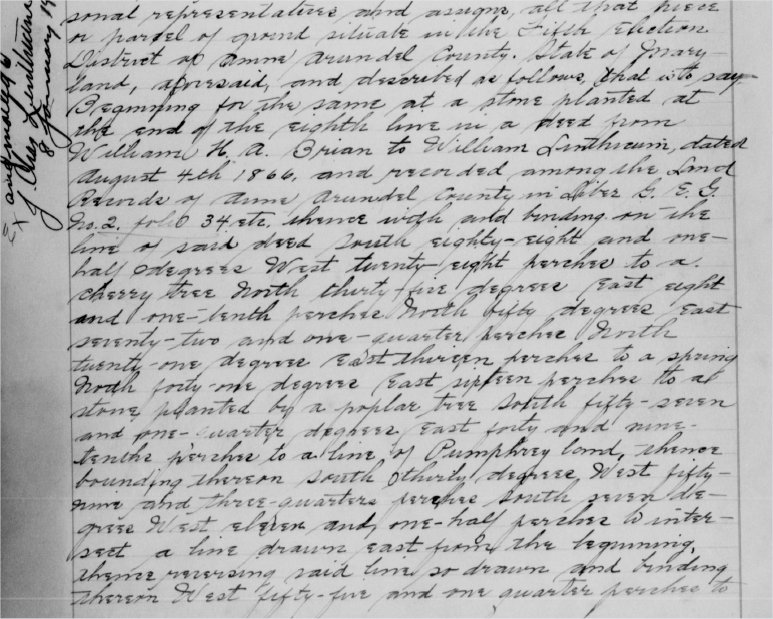 sonal representatives and assigns, all that piece
or parcel of ground situate in the Fifth Election
District of Anne Arundel County. State of Mary-
land, aforesaid, and described as follows, that is to say
Beginning for the same at a stone planted at
the end of the eighth line in a deed from
William H. A. Brian to William Linthicum, dated
August 4th 1866, and recorded among the Land
Records of Anne Arundel County in Liber G. E. G.
No. 2. folio 34 etc. thence with and binding on the
line of said deed South eighty-eight and one-
half degrees West twenty-eight perches to a
cherry tree North thirty-five degrees East eight
and one-tenth perches North fifty degrees East
seventy-two and one-quarter perches North
twenty-one degrees East thirteen perches to a spring
North forty-one degrees East sixteen perches to a
stone planted by a poplar tree South fifty-seven
and one-quarter degrees East forty and nine-
tenths perches to a line of Pumphrey land, thence
bounding thereon South thirty degrees West fifty-
nine and three-quarters perches South seven de-
grees West eleven and one-half perches to inter-
sect a line drawn East from the beginning,
thence reversing said line so drawn and binding
thereon West fifty-five and one quarter perches to
Linthicum
8 January 19